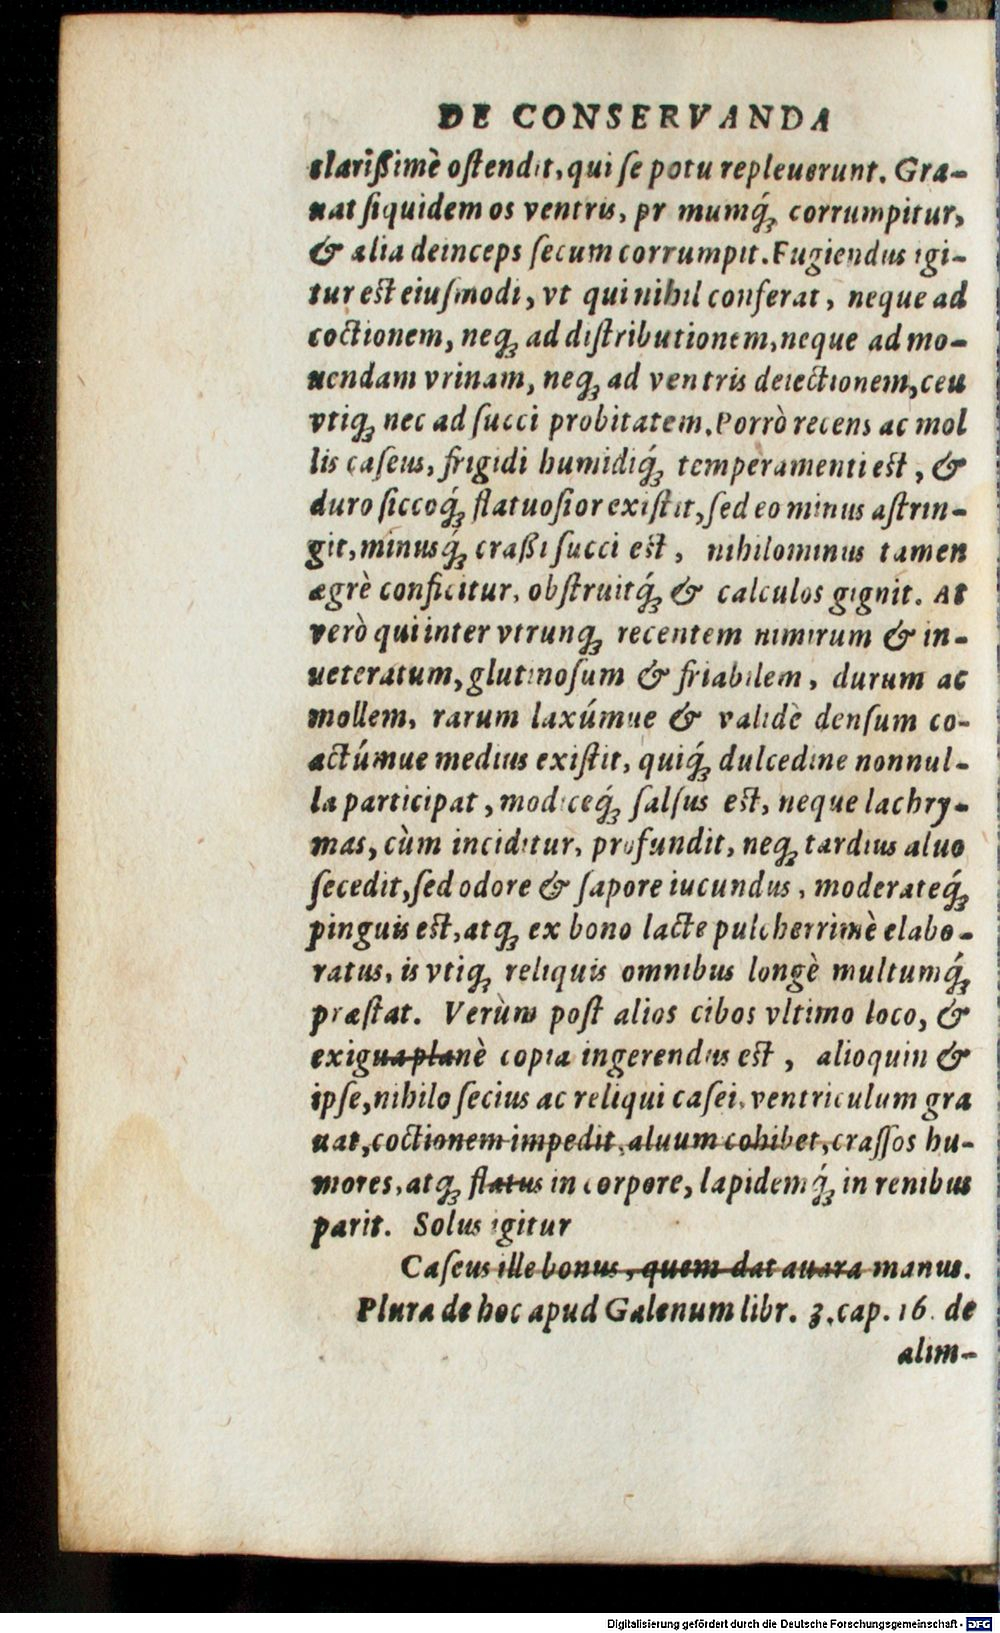 DE CONSERVANDA
clarißimè oſtendit, qui ſe potu repleuerunt. Gra-
uat ſiquidem os ventris, pr mumq́ꝫ corrumpitur,
& alia deinceps ſecum corrumpit. Fugiendus igi-
tur eſt eiuſmodi, vt qui nihil conferat, neque ad
coctionem, neqꝫ ad diſtributionem, neque ad mo-
uendam vrinam, neqꝫ ad ventris deiectionem, ceu
vtiqꝫ nec ad ſucci probitatem. Porrò recens ac mol
lis caſeus, frigidi humidiq́ꝫ temperamenti eſt, &
duro ſiccoq́ꝫ flatuoſior exiſtit, ſed eo minus aſtrin-
git, minusq́ꝫ craßi ſucci eſt, nihilominus tamen
ægrè conficitur, obſtruitq́ꝫ & calculos gignit. At
verò qui inter vtrunqꝫ recentem nimirum & in-
ueteratum, glutinoſum & friabilem, durum ac
mollem, rarum laxúmue & validè denſum co-
actúmue medius exiſtit, quiq́ꝫ dulcedine nonnul-
la participat, modiceq́ꝫ ſalſus eſt, neque lachry-
mas, cùm inciditur, profundit, neqꝫ tardius aluo
ſecedit, ſed odore & ſapore iucundus, moderateq́ꝫ
pinguis eſt, atqꝫ ex bono lacte pulcherrimè elabo-
ratus, is vtiqꝫ reliquis omnibus longè multumq́ꝫ
præſtat. Verùm poſt alios cibos vltimo loco, &
exigua planè copia ingerendus eſt, alioquin &
ipſe, nihilo ſecius ac reliqui caſei, ventriculum gra
uat, coctionem impedit, aluum cohibet, craſſos hu-
mores, atqꝫ flatus in corpore, lapidemq́ꝫ in renibus
parit. Solus igitur
Caſeus ille bonus, quem dat auara manus.
Plura de hoc apud Galenum libr. 3. cap. 16. de
alim-
Digitalisierung gefördert durch die Deutsche Forschungsgemeinschaft - DFG